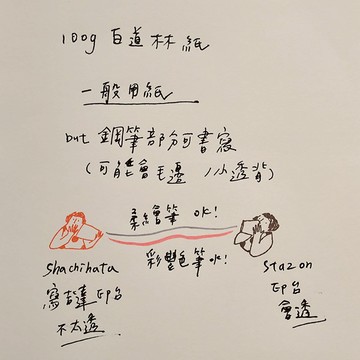 100g 白道林紙
一般用紙
but 鋼筆部分可書寫
(可能會毛邊/小透背)
柔繪筆 OK!
彩艷筆 ok!
Shachihata
寫吉達印台
不太透
Stazon
印台
會透